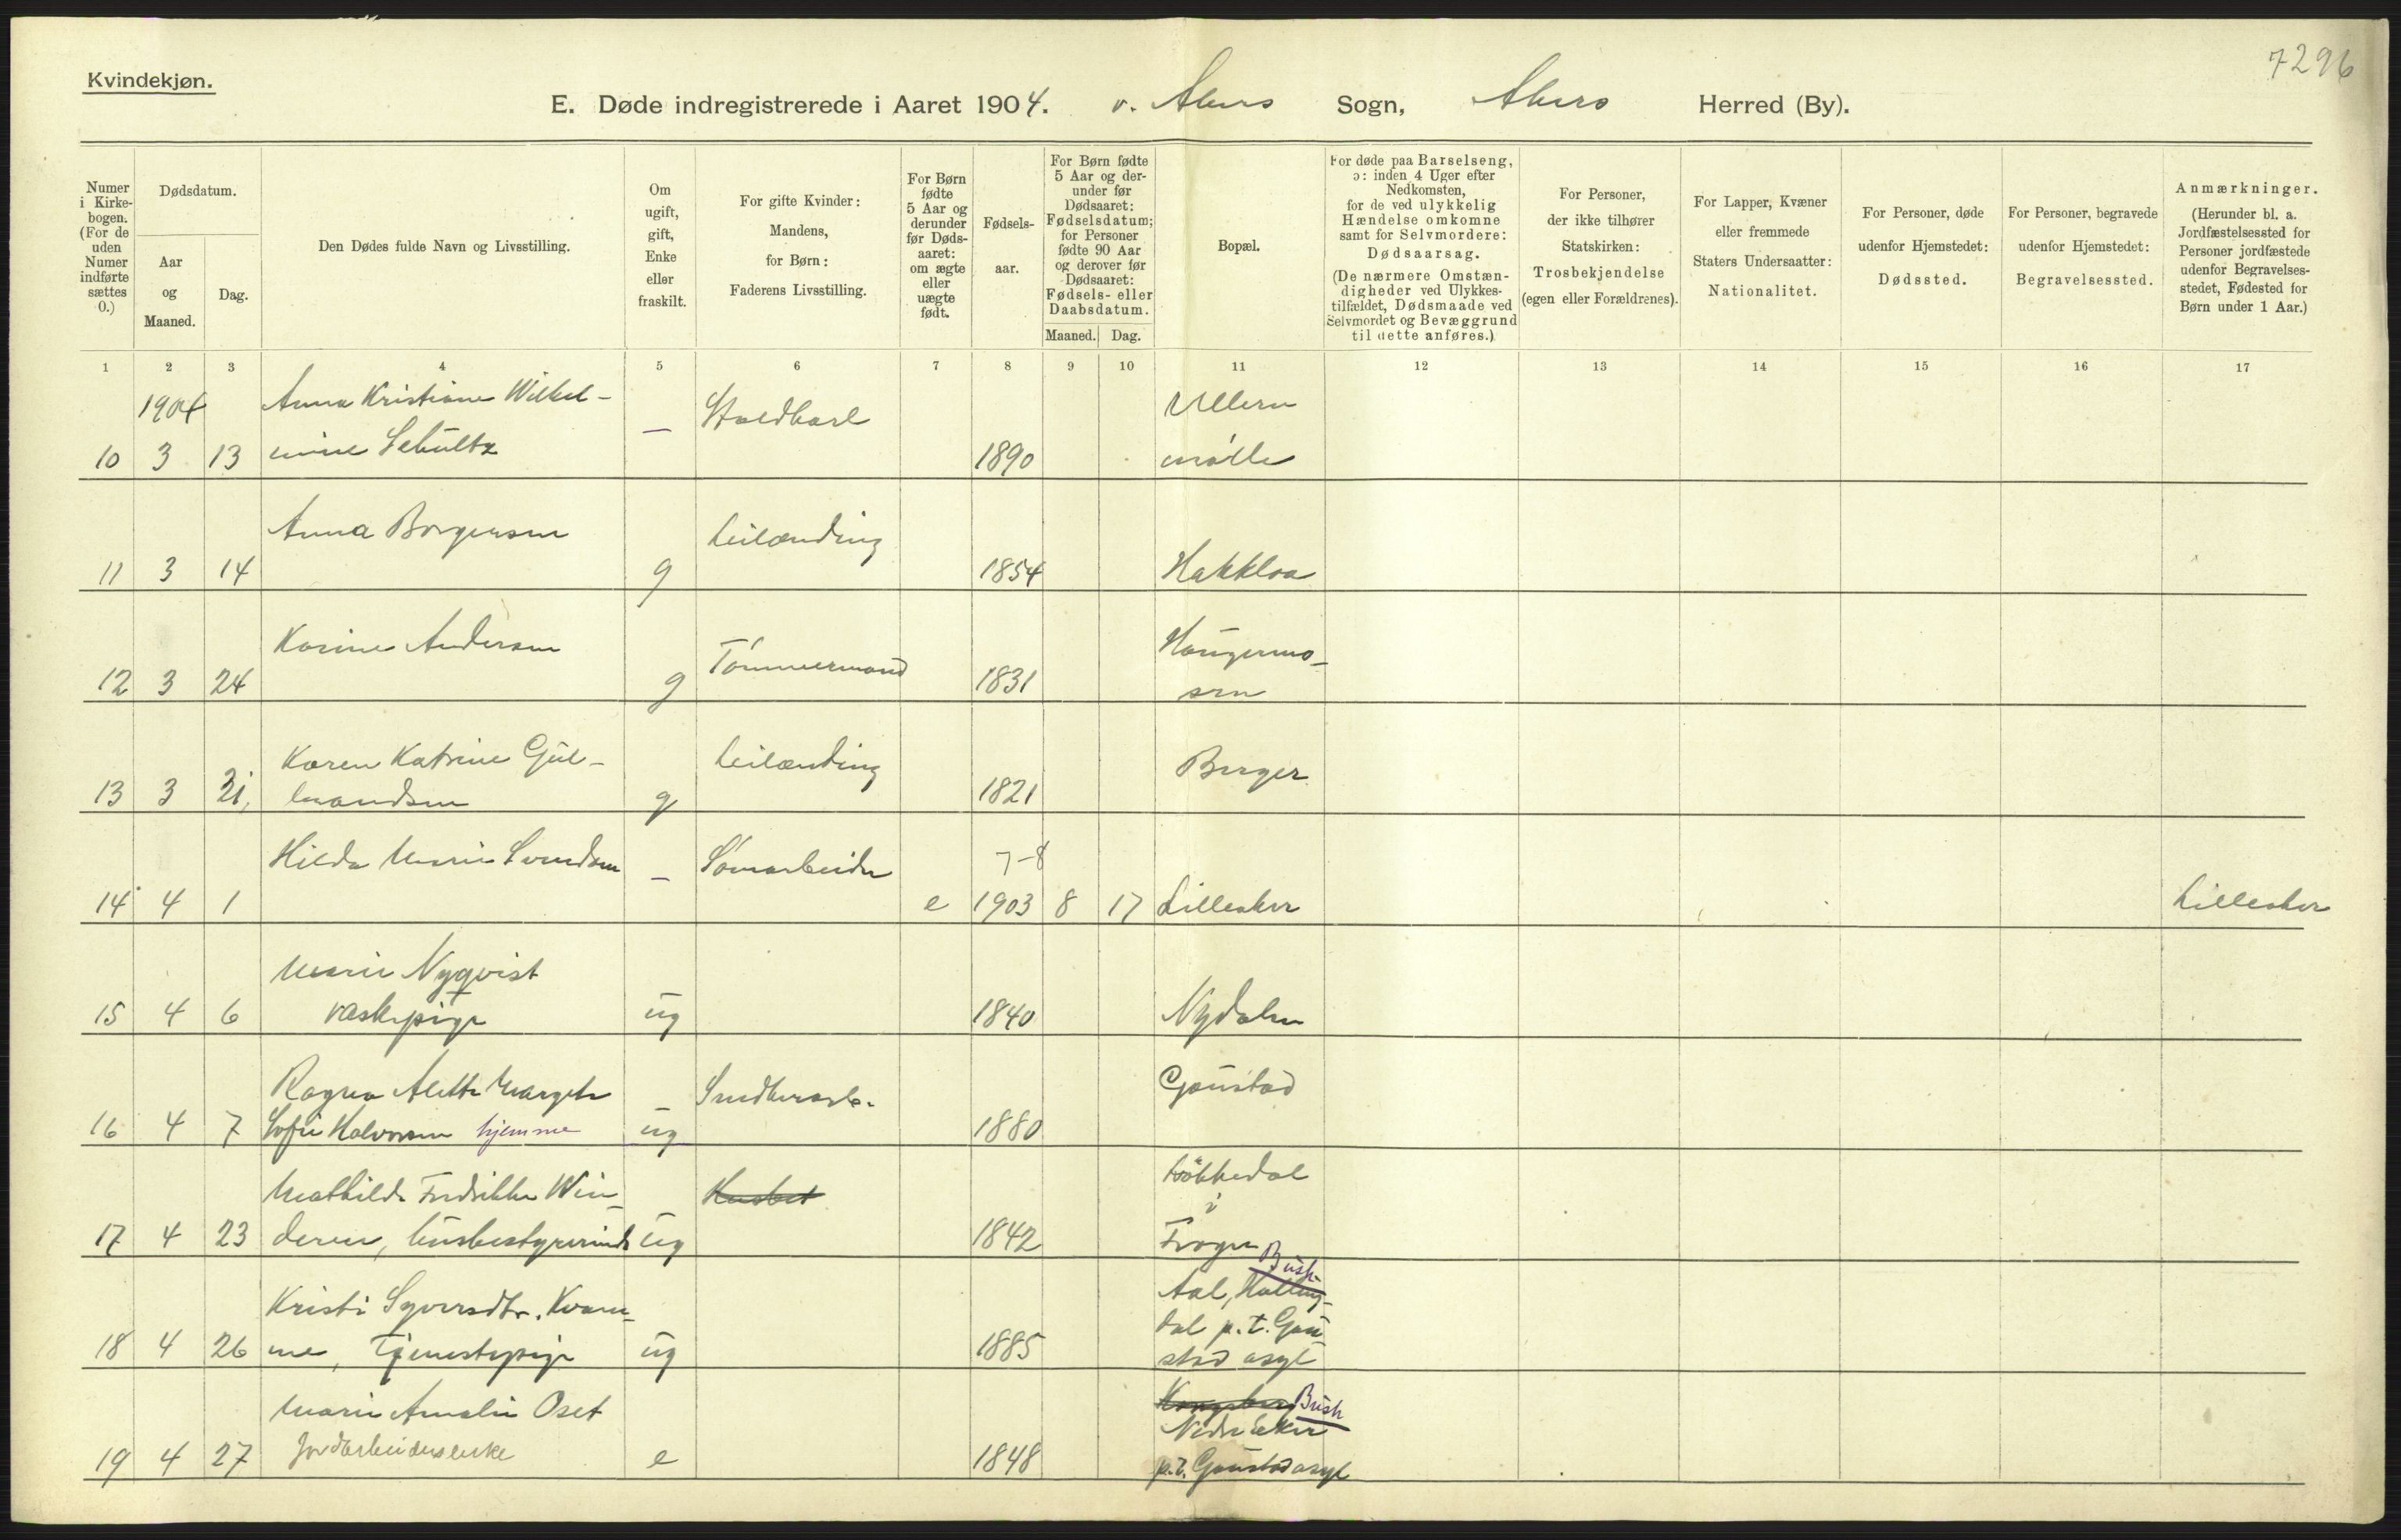 7296
Kvindekjøn.
E. Døde indregistrerede i Aaret 1904. v. Akers Sogn, Akers Herred (By).
Numer i Kirkebogen. (For de uden Numer indførte sættes 0.)
Dødsdatum.
Aar og Maaned.
Dag.
Den Dødes fulde Navn og Livsstilling.
Om ugift, gift, Enke eller fraskilt.
For gifte Kvinder: Mandens, for Børn: Faderens Livsstilling.
For Børn fødte 5 Aar og derunder før Dødsaaret: om ægte eller uægte født.
Fødselsaar.
For Børn fødte 5 Aar og derunder før Dødsaaret: Fødselsdatum; for Personer fødte 90 Aar og derover før Dødsaaret: Fødsels- eller Daabsdatum.
Maaned. Dag.
Bopæl.
For døde paa Barselseng, ɔ: inden 4 Uger efter Nedkomsten, for de ved ulykkelig Hændelse omkomne samt for Selvmordere: Dødsaarsag. (De nærmere Omstændigheder ved Ulykkestilfældet, Dødsmaade ved Selvmordet og Bevæggrund til dette anføres.)
For Personer, der ikke tilhører Statskirken: Trosbekjendelse (egen eller Forældrenes).
For Lapper, Kvæner eller fremmede Staters Undersaatter: Nationalitet.
For Personer, døde udenfor Hjemstedet: Dødssted.
For Personer, begravede udenfor Hjemstedet: Begravelsessted.
Anmærkninger. (Herunder bl. a. Jordfæstelsessted for Personer jordfæstede udenfor Begravelsesstedet, Fødested for Børn under 1 Aar.)
1 2 3 4 5 6 7 8 9 10 11 12 13 14 15 16 17
1904 Anna Kristiane Wilhel- — Staldkarl Ullern
10 3 13 mine Schultz 1890 mølle
Anna Borgersen Leilænding
11 3 14 g 1854 Hakkloa
Karine Andersen Tømmermand Haugermo-
12 3 24 g 1831 sen
Karen Katrine Gul- Leilænding Berger
13 3 21 brandsen g 1821
Hilda Marie Svendsen — Sömarbeider 7-8
14 4 1 e 1903 8 17 Lilleaker Lilleaker
Marie Nyqvist
15 4 6 vaskepige ug 1840 Nydalen
Ragna Alette Margete — Smedkararb. Gaustad
16 4 7 Sofie Halvorsen hjemme ug 1880
Mathilde Fredrikke Win- Løkkedal i
17 4 23 deren, husbestyrerinde ug 1842 Frogner
Kristi Syversdtr. Kvam- Aal, Halling- Busk
dal p.t. Gau-
18 4 26 me, Tjenestepige ug 1885 stad asyl
Marie Amalie Oset Kongsberg Busk
Jordarbeiderske Nedre Eker
19 4 27 e 1848 p.t. Gaustad asyl